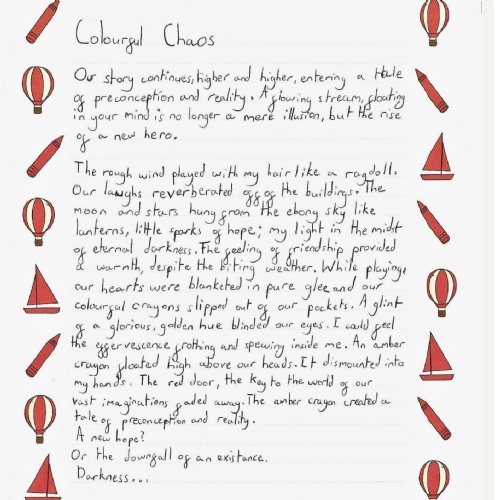 Colourful Chaos
Our story continues, higher and higher, entering a tale
of preconception and reality. A flowing stream, floating
in your mind is no longer a mere illusion, but the rise
of a new hero.
The rough wind played with my hair like a ragdoll.
Our laughs reverberated off of the buildings. The
moon and stars hung from the ebony sky like
lanterns, little sparks of hope; my light in the midst
of eternal darkness. The feeling of friendship provided
a warmth, despite the biting weather. While playing,
our hearts were blanketed in pure glee and our
colourful crayons slipped out of our pockets. A glint
of a glorious, golden hue blinded our eyes. I could feel
the effervescence frothing and spewing inside me. An amber
crayon floated high above our heads. It dismounted into
my hands. The red door, the key to the world of our
vast imaginations faded away. The amber crayon created a
tale of preconception and reality.
A new hope?
Or the downfall of an existance.
Darkness...